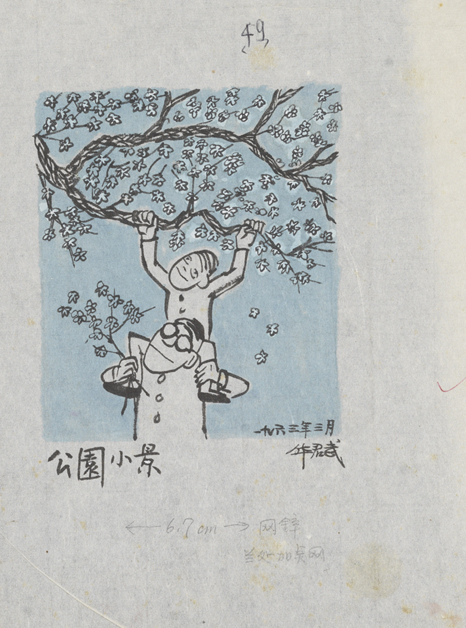 49
一九六三年三月
华君武
公園小景
6.7cm 网锌
兰处加点网